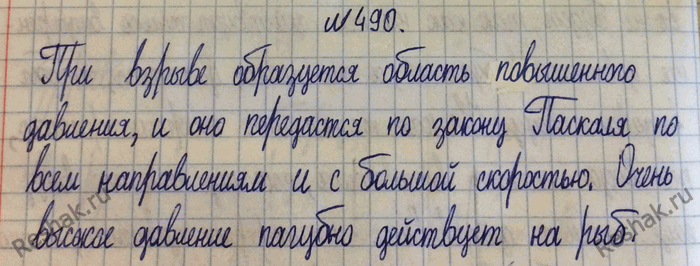 №490.
При взрыве образуется область повышенного
давления, и оно передастся по закону Паскаля по
всем направлениям и с большой скоростью. Очень
высокое давление пагубно действует на рыб.
Reshak.ru
Reshak.ru